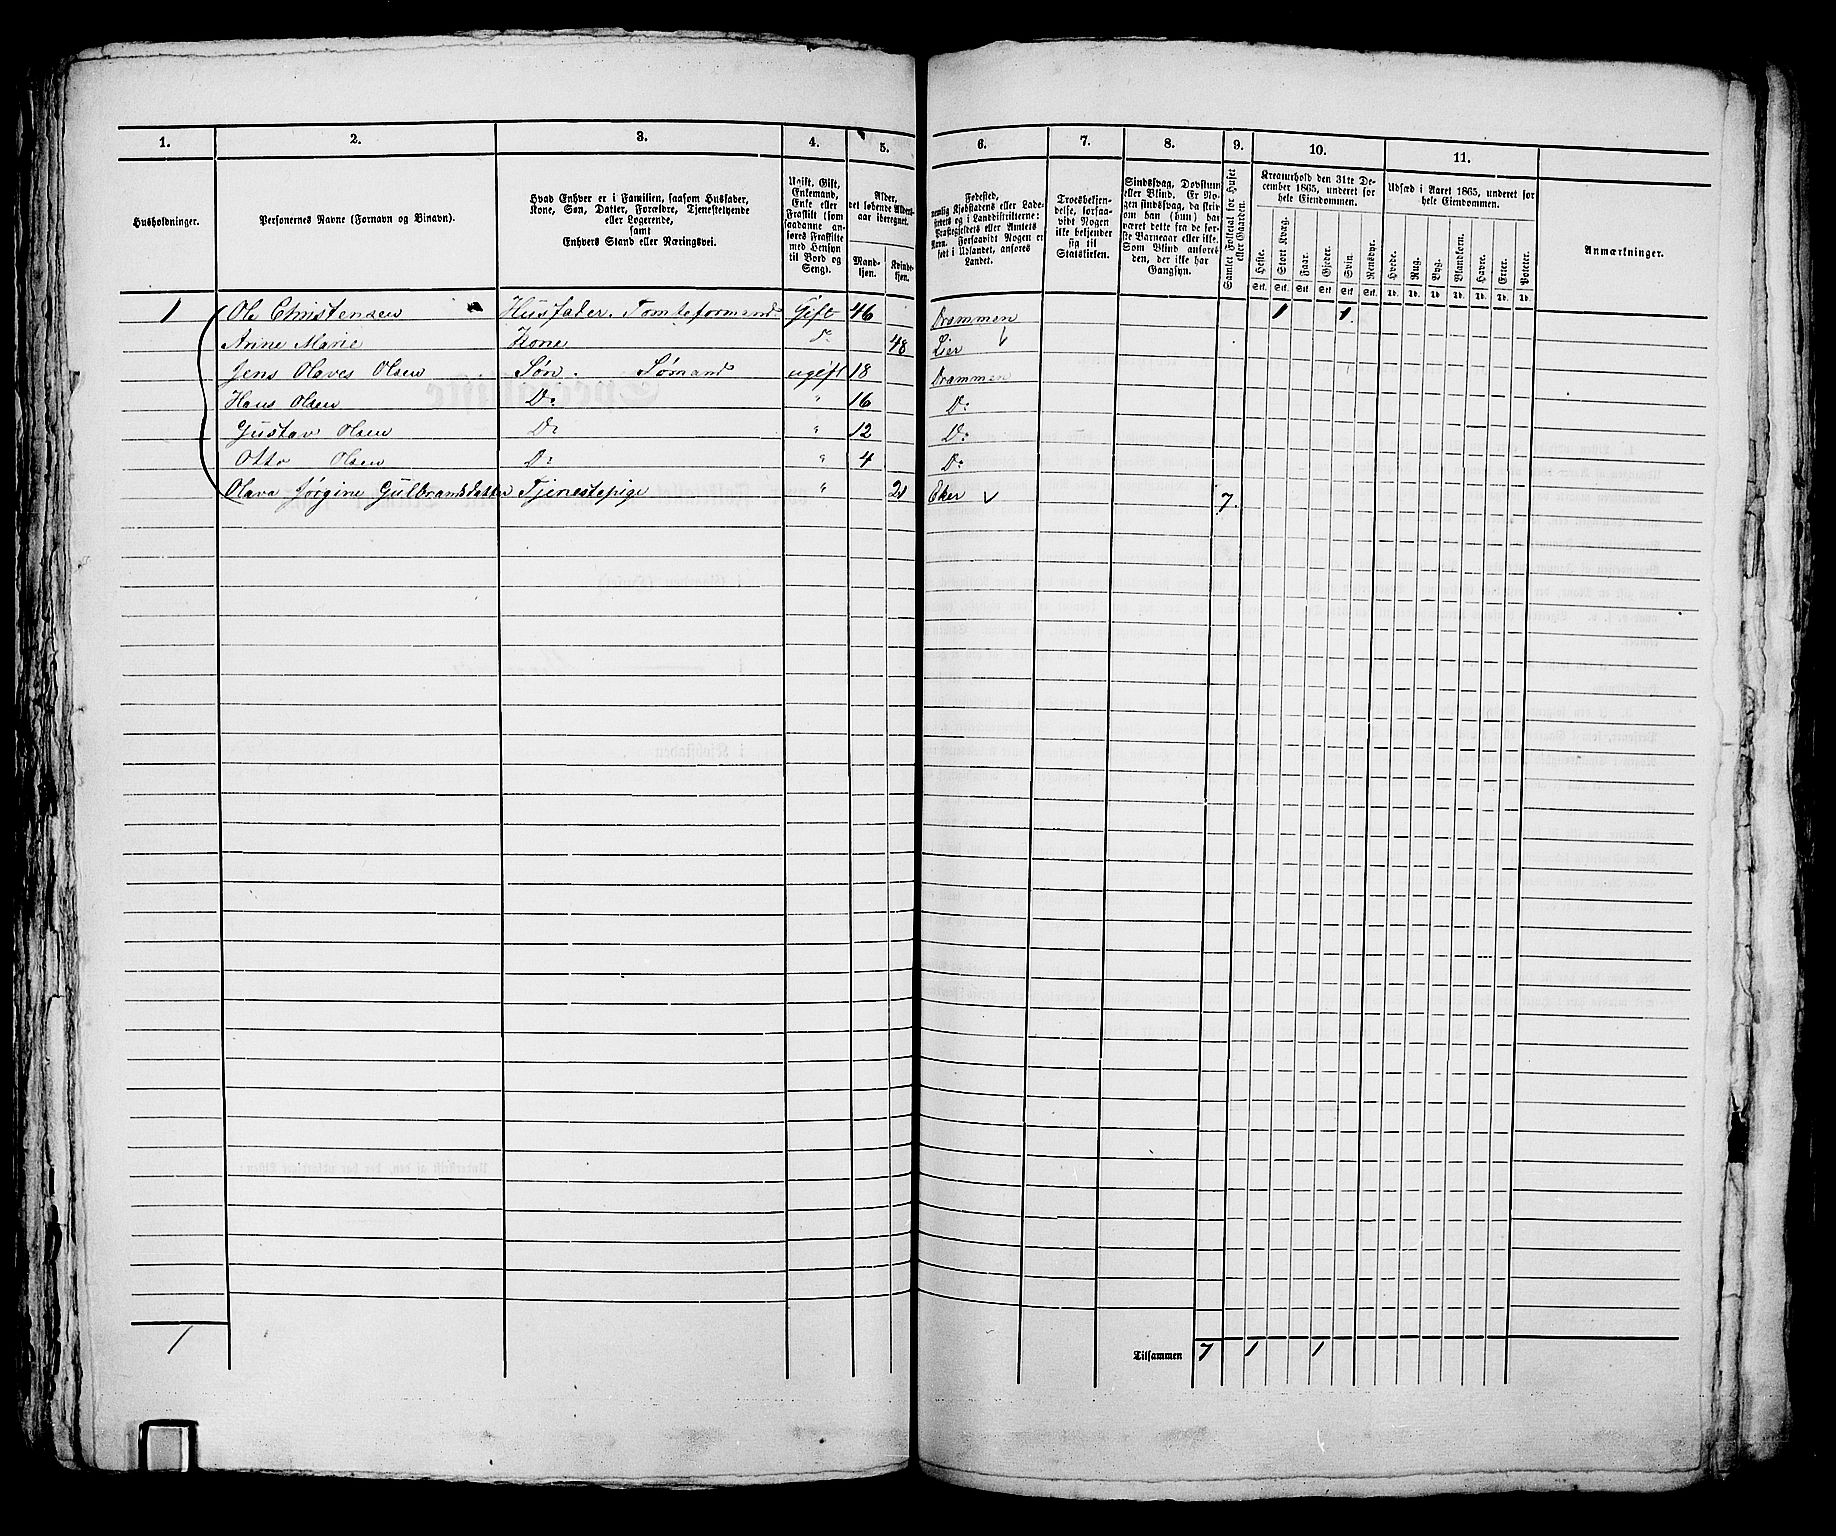 1. 2. 3. 4. 5. 6. 7. 8. 9. 10. 11.
Husholdninger.
Personernes Navne (Fornavn og Binavn).
Hvad Enhver er i Familien, saasom Husfader,
Kone, Søn, Datter, Forældre, Tjenestetyende
eller Logerende,
samt
Enhvers Stand eller Næringsvei.
Ugift, Gift,
Enkemand,
Enke eller
Fraskilt (som
saadanne an-
føres Fraskilte
med Hensyn
til Bord og
Seng).
Alder,
det løbende Alders-
aar iberegnet.
Mand-
kjøn.
Kvinde-
kjøn.
Fødested,
nemlig Kjøbstadens eller Lade-
stedets og i Landdistrikterne:
Præstegjeldets eller Amtets
Navn. Forsaavidt Nogen er
født i Udlandet, anføres
Landet.
Troesbekjen-
delse, forsaa-
vidt Nogen
ikke bekjender
sig til
Statskirken.
Sindssvag, Døvstum
eller Blind. Er No-
gen sindssvag, da skriv
om han (hun) har
været dette fra de før-
ste Barneaar eller ikke.
Som Blind anføres
den, der ikke har
Gangsyn.
Samlet Folketal for Huset
eller Gaarden.
Kreaturhold den 31te De-
cember 1865, underet for
hele Eiendommen.
Heste. Stort Kvæg. Faar. Gjeder. Svin. Rensdyr.
Stk. Stk. Stk. Stk. Stk. Stk.
Udsæd i Aaret 1865, underet for
hele Eiendommen.
Hvede. Rug. Byg. Blandkorn. Havre. Erter. Poteter.
Td. Td. Td. Td. Td. Td. Td.
Anmærkninger.
1 Ole Christensen Husfader. Tomteformand Gift 46 Drammen 1 1
Anne Marie Kone Do 48 Lier
Jens Olaves Olsen Søn. Sømand ugift 18 Drammen
Hans Olsen Do " 16 Do
Gustav Olsen Do " 12 Do
Otto Olsen Do " 4 Do
Olava Jørgine Gulbransdatter Tjenestepige " 21 Eker 7
1
Tilsammen 7 1 1